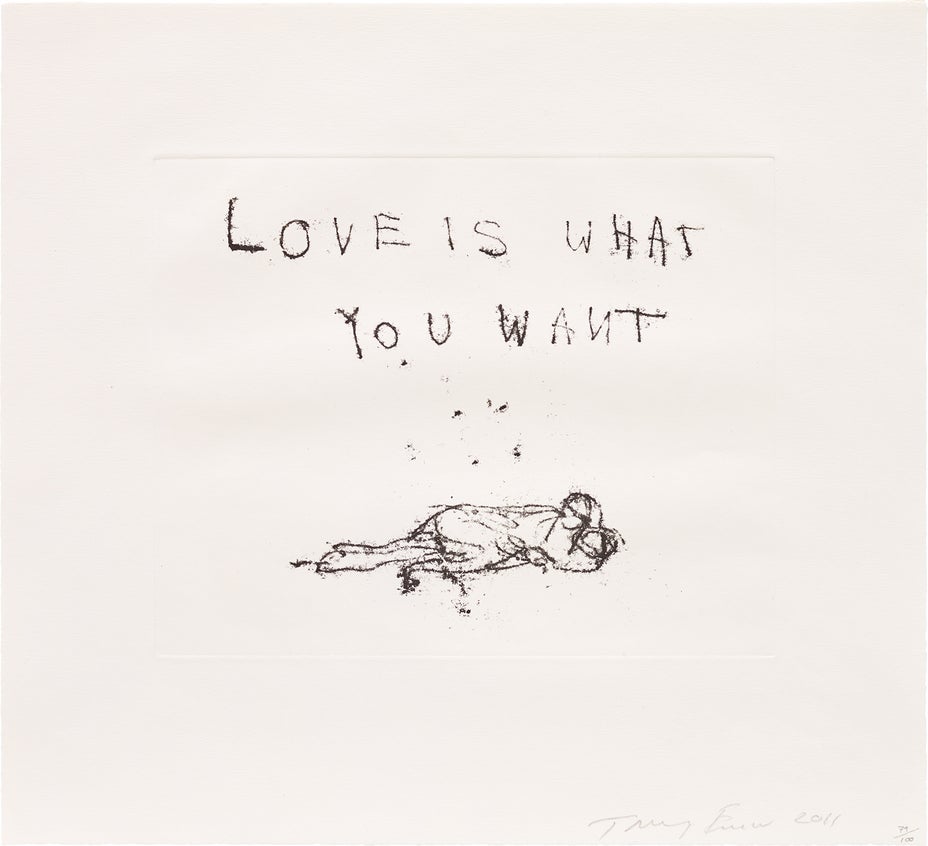 LOVE IS WHAT
YOU WANT
Tracey Emin 2011